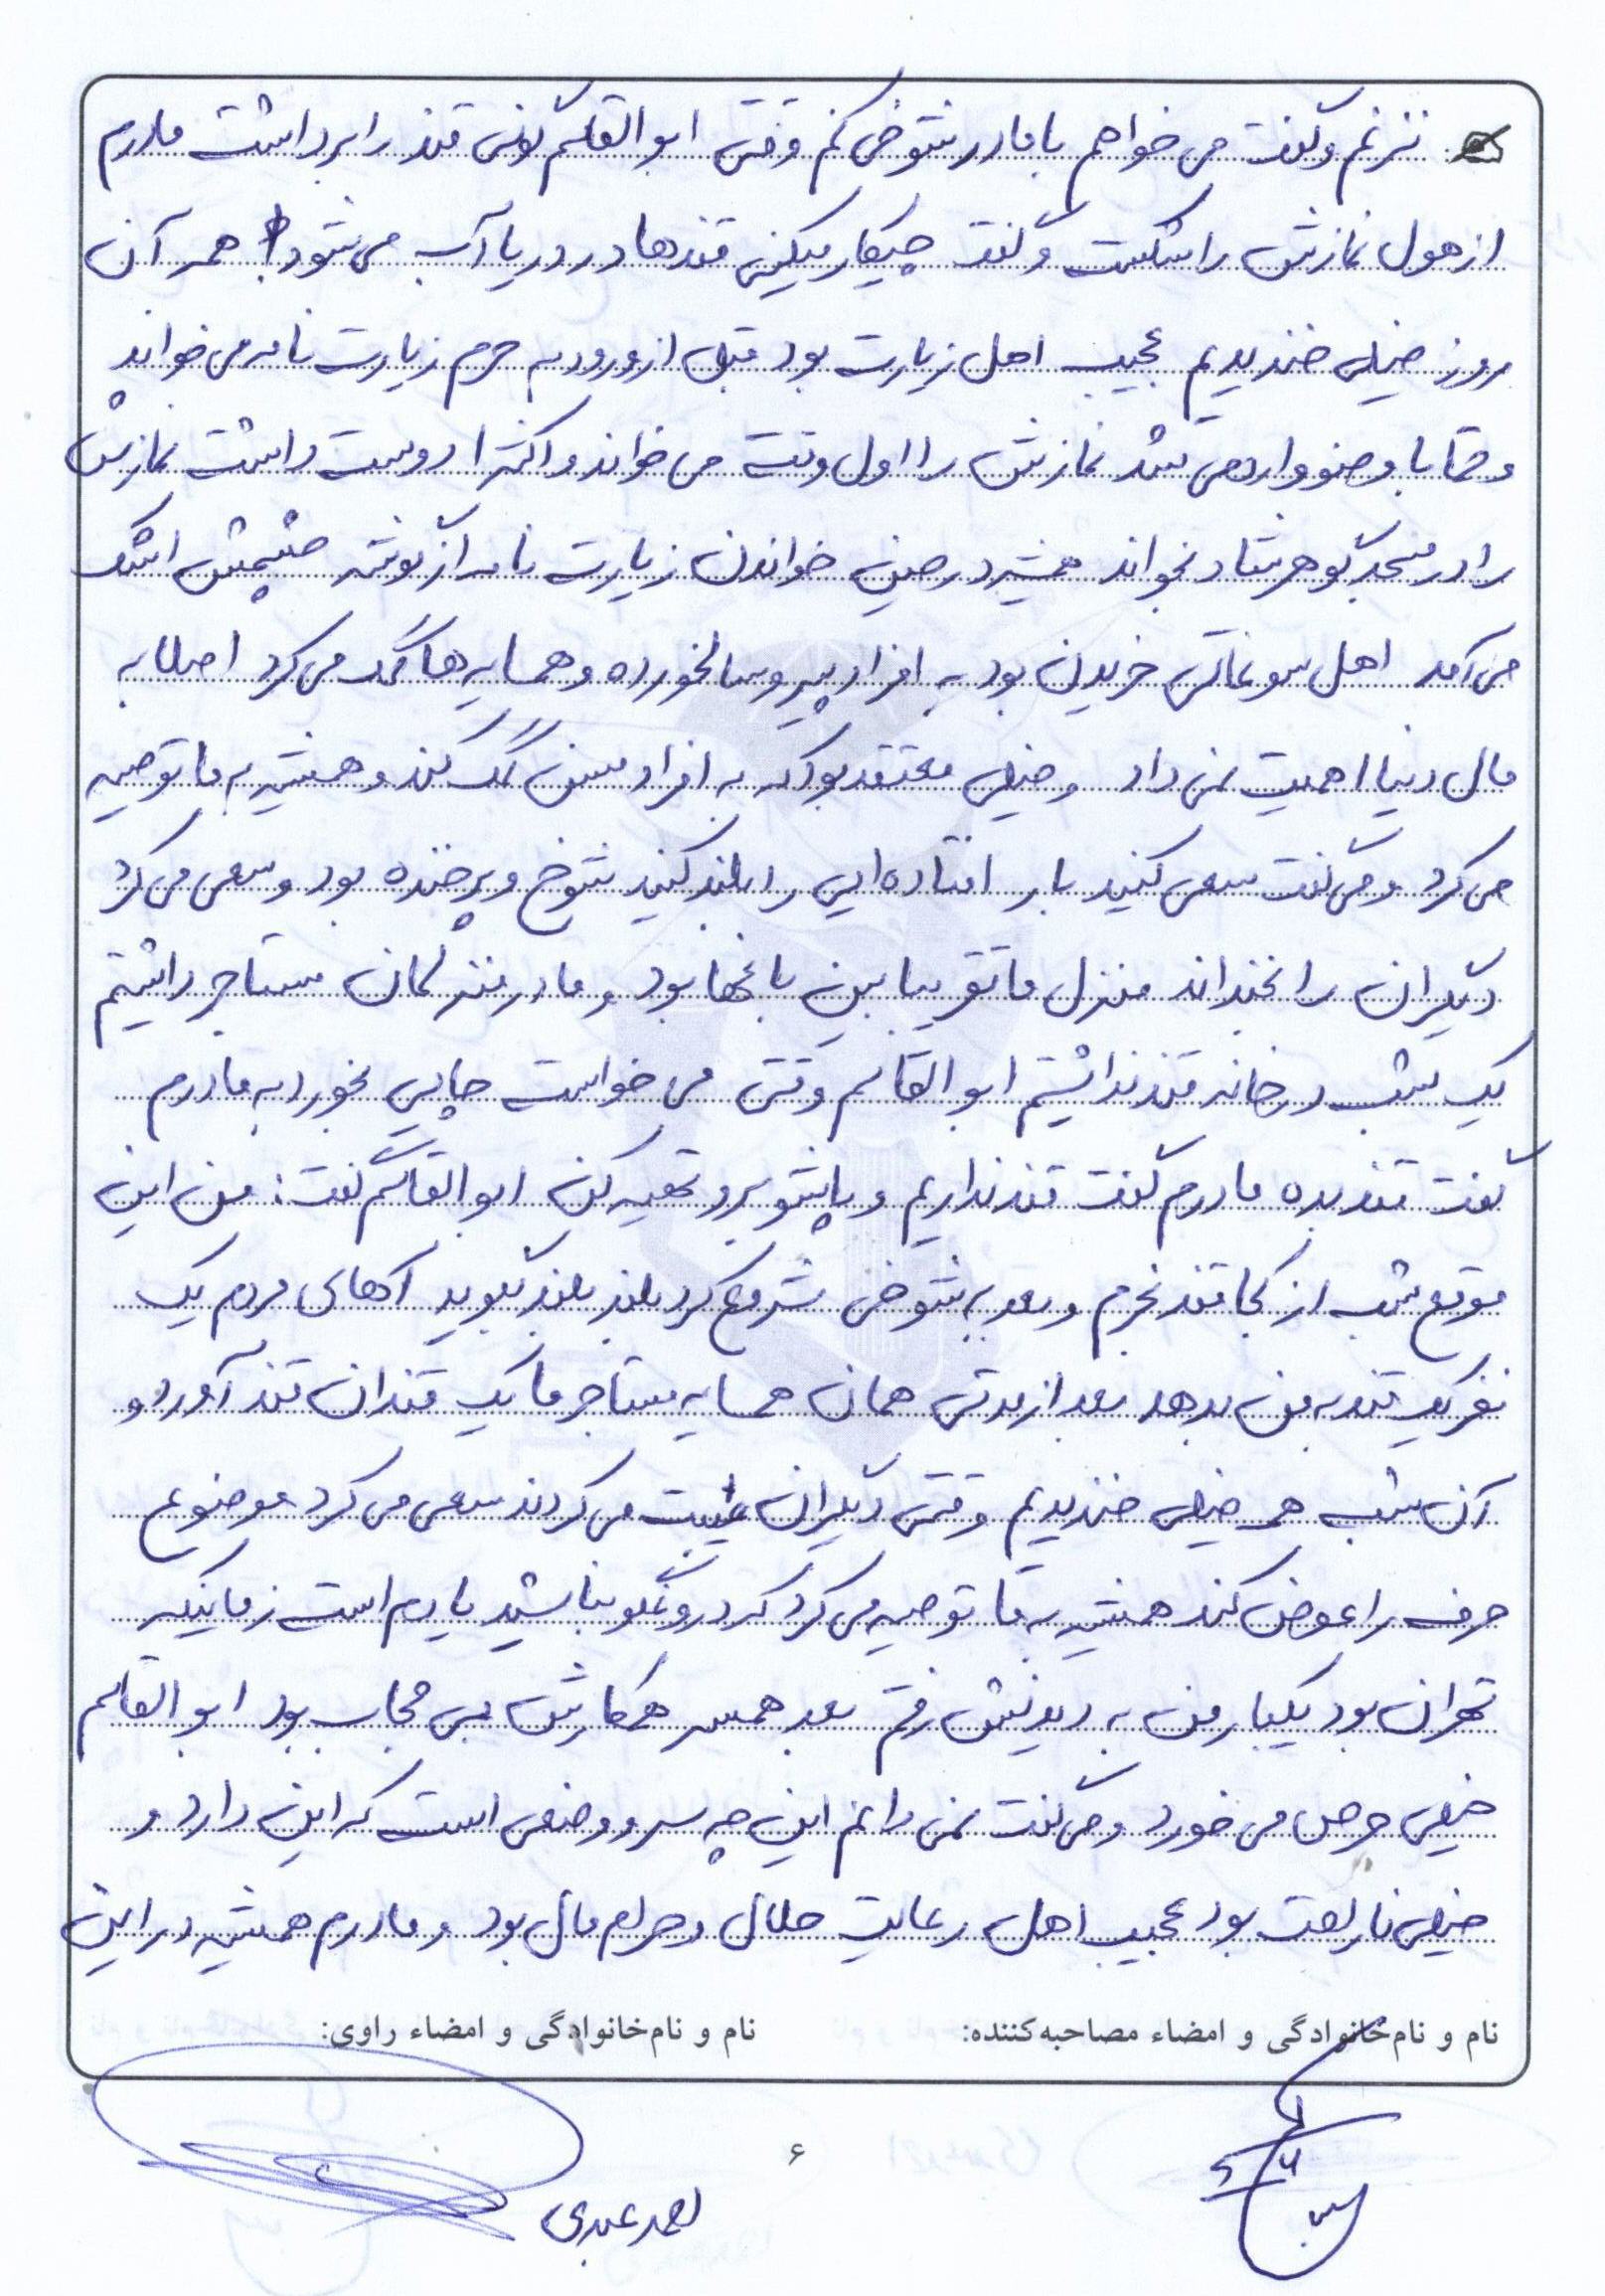 نزنم و گفت می خواهم با مادر شوخی کنم وقتی ابوالقاسم گونی قند را برداشت مادرم
از هول نمازش را شکست و گفت چیکار میکنی قندها در دریا آب می شود! همه آن
روز خیلی خندیدیم عجیب اهل زیارت بود قبل از ورود به حرم زیارت نامه می خواند
و حتما با وضو وارد می شد نمازش را اول وقت می خواند و اکثرا دوست داشت نمازش
را در مسجد گوهرشاد بخواند همیشه در حین خواندن زیارت نامه از گوشه چشمش اشک
می آمد اهل سوغاتی خریدن بود به افراد پیر و سالخورده و همسایه ها کمک می کرد اصلا به
مال دنیا اهمیت نمی داد و خیلی معتقد بود که به افراد مسن کمک کند و همیشه به ما توصیه
می کرد و می گفت سعی کنید بار افتاده ایی را بلند کنید شوخ و پرخنده بود و سعی می کرد
دیگران را بخنداند منزل ما تقریبا بین باغها بود و ما در منزلمان مستاجر داشتیم
یک شب در خانه قند نداشتیم ابوالقاسم وقتی می خواست چایی بخورد به مادرم
گفت قند بده مادرم گفت قند نداریم و پاشو برو تهیه کن ابوالقاسم گفت: من این
موقع شب از کجا قند بخرم و بعد به شوخی شروع کرد بلند بلند بگوید آهای مردم یک
نفر یک قند به من بدهد بعد از مدتی همان همسایه مستاجر ما یک قندان قند آورد و
آن شب هم خیلی خندیدیم وقتی دیگران غیبت می کردند سعی می کرد موضوع
حرف را عوض کند همیشه به ما توصیه می کرد که دروغگو نباشید یادم است زمانیکه
تهران بود یکبار من به دیدنش رفتم بعد همسر همکارش بی حجاب بود ابوالقاسم
خیلی حرص می خورد و می گفت نمی دانم این چه سر و وضعی است که این دارد و
خیلی ناراحت بود عجیب اهل رعایت حلال و حرام مال بود و مادرم همیشه در این
نام و نام‌خانوادگی و امضاء مصاحبه‌کننده: نام و نام‌خانوادگی و امضاء راوی:
احمد عبدی
۶